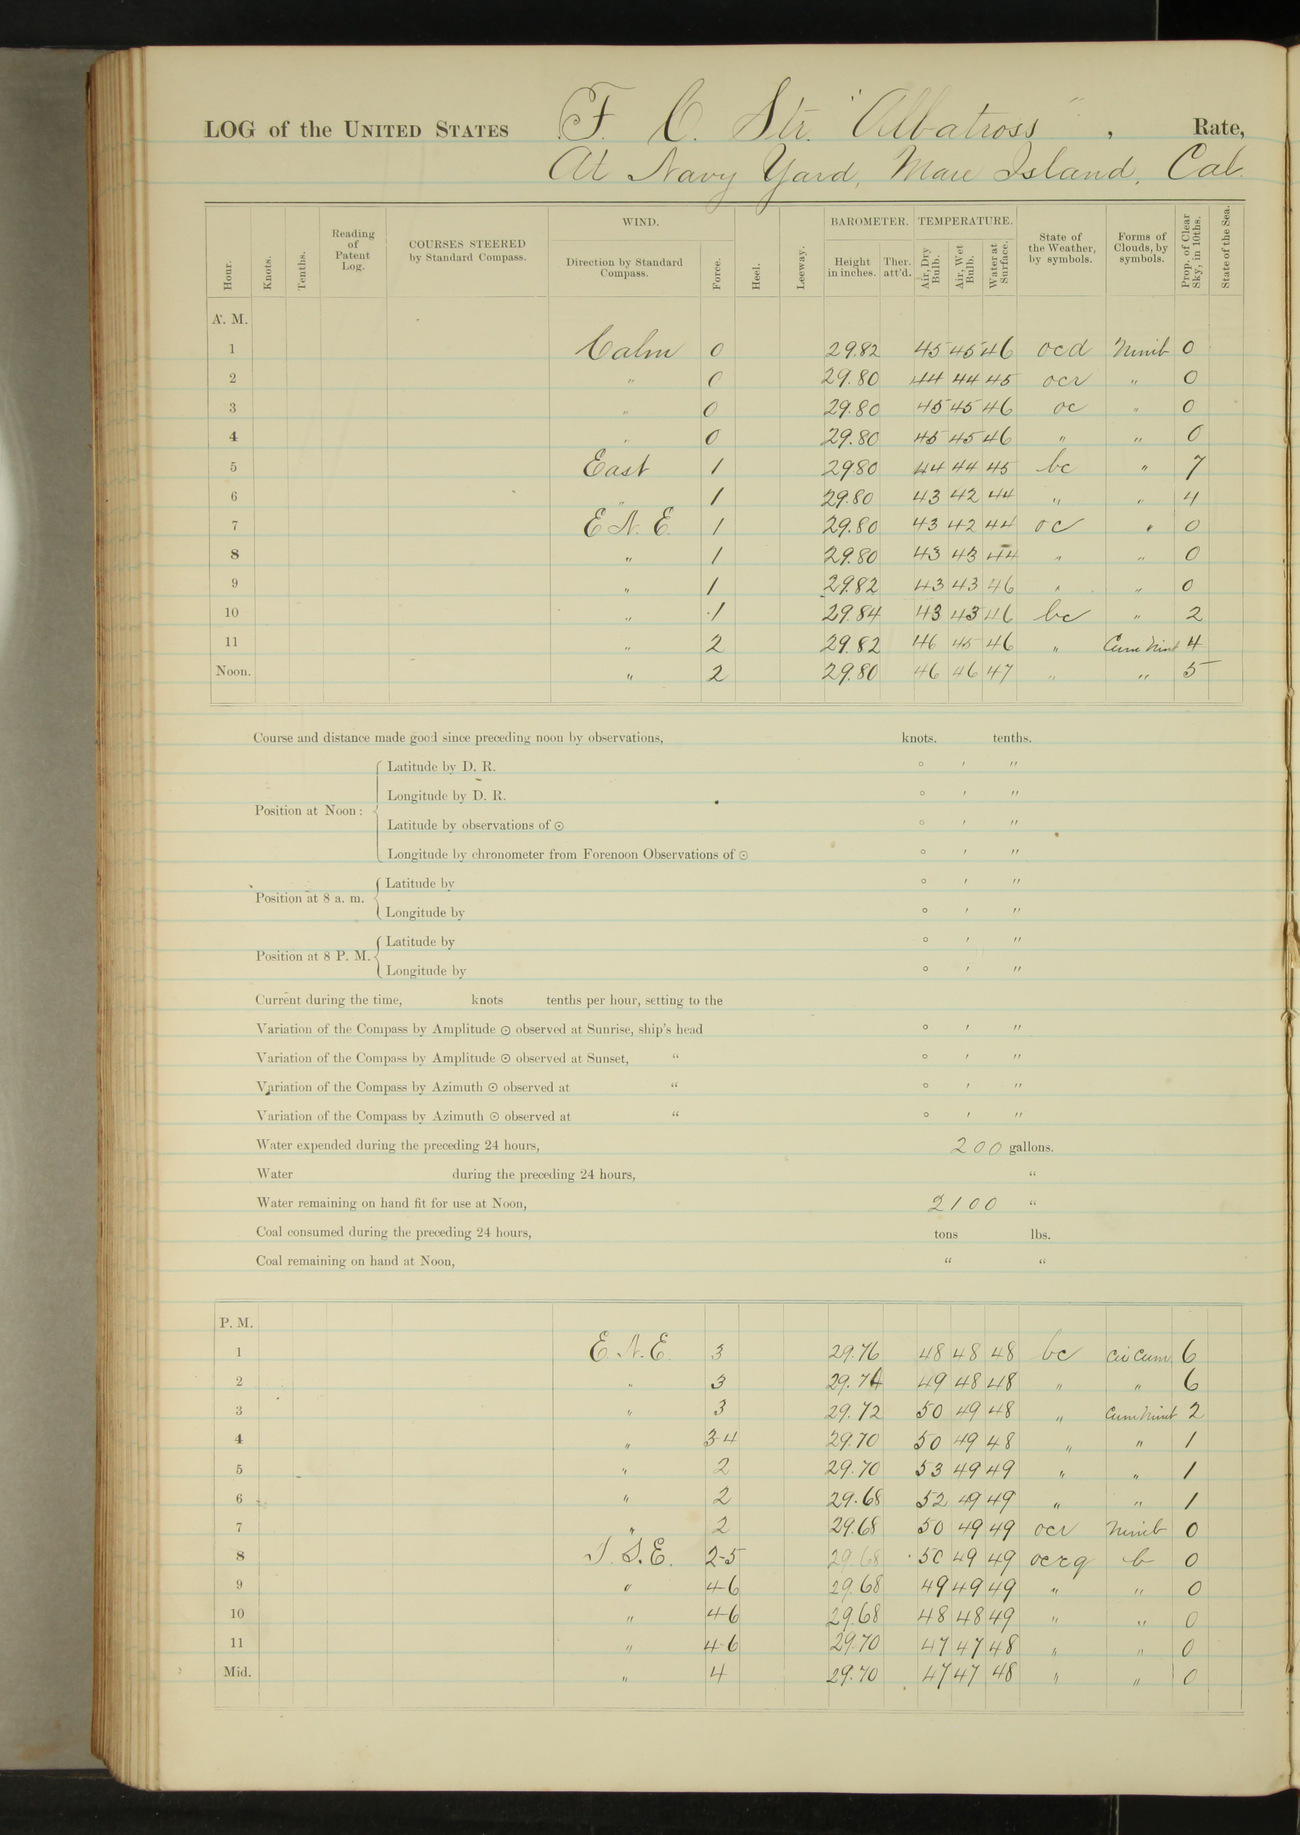 LOG of the UNITED STATES F. C. Str. "Albatross", Rate,
At Navy Yard, Mare Island, Cal.
Hour. Knots. Tenths. Reading of Patent Log. COURSES STEERED by Standard Compass. WIND. Direction by Standard Compass. Force. Heel. Leeway. BAROMETER. Height in inches. Ther. att'd. TEMPERATURE. Air, Dry Bulb. Air, Wet Bulb. Water at Surface. State of the Weather, by symbols. Forms of Clouds, by symbols. Prop. of Clear Sky, in 10ths. State of the Sea.
A. M.
1 Calm 0 29.82 45 45 46 ocd Nimb 0
2 " 0 29.80 44 44 45 ocr " 0
3 " 0 29.80 45 45 46 oc " 0
4 " 0 29.80 45 45 46 " " 0
5 East 1 2980 44 44 45 bc " 7
6 " 1 29.80 43 42 44 " " 4
7 E.N.E. 1 29.80 43 42 44 oc " 0
8 " 1 29.80 43 43 44 " " 0
9 " 1 29.82 43 43 46 " " 0
10 " 1 29.84 43 43 46 bc " 2
11 " 2 29.82 46 45 46 " Cum Nimb 4
Noon. " 2 29.80 46 46 47 " " 5
Course and distance made good since preceding noon by observations, knots. tenths.
Position at Noon: Latitude by D. R. ° ′ ″
Longitude by D. R. ° ′ ″
Latitude by observations of ☉ ° ′ ″
Longitude by chronometer from Forenoon Observations of ☉ ° ′ ″
Position at 8 a. m. Latitude by ° ′ ″
Longitude by ° ′ ″
Position at 8 P. M. Latitude by ° ′ ″
Longitude by ° ′ ″
Current during the time, knots tenths per hour, setting to the
Variation of the Compass by Amplitude ☉ observed at Sunrise, ship's head ° ′ ″
Variation of the Compass by Amplitude ☉ observed at Sunset, " ° ′ ″
Variation of the Compass by Azimuth ☉ observed at " ° ′ ″
Variation of the Compass by Azimuth ☉ observed at " ° ′ ″
Water expended during the preceding 24 hours, 200 gallons.
Water during the preceding 24 hours, "
Water remaining on hand fit for use at Noon, 2100 "
Coal consumed during the preceding 24 hours, tons lbs.
Coal remaining on hand at Noon, " "
P. M.
1 E.N.E. 3 29.76 48 48 48 bc Cir Cum. 6
2 " 3 29.74 49 48 48 " " 6
3 " 3 29.72 50 49 48 " Cum Nimb 2
4 " 3-4 29.70 50 49 48 " " 1
5 " 2 29.70 53 49 49 " " 1
6 " 2 29.68 52 49 49 " " 1
7 " 2 29.68 50 49 49 ocr Nimb 0
8 S.S.E. 2-5 29.68 50 49 49 ocrq 0
9 " 4-6 29.68 49 49 49 " " 0
10 " 4-6 29.68 48 48 49 " " 0
11 " 4-6 29.70 47 47 48 " " 0
Mid. " 4 29.70 47 47 48 " " 0